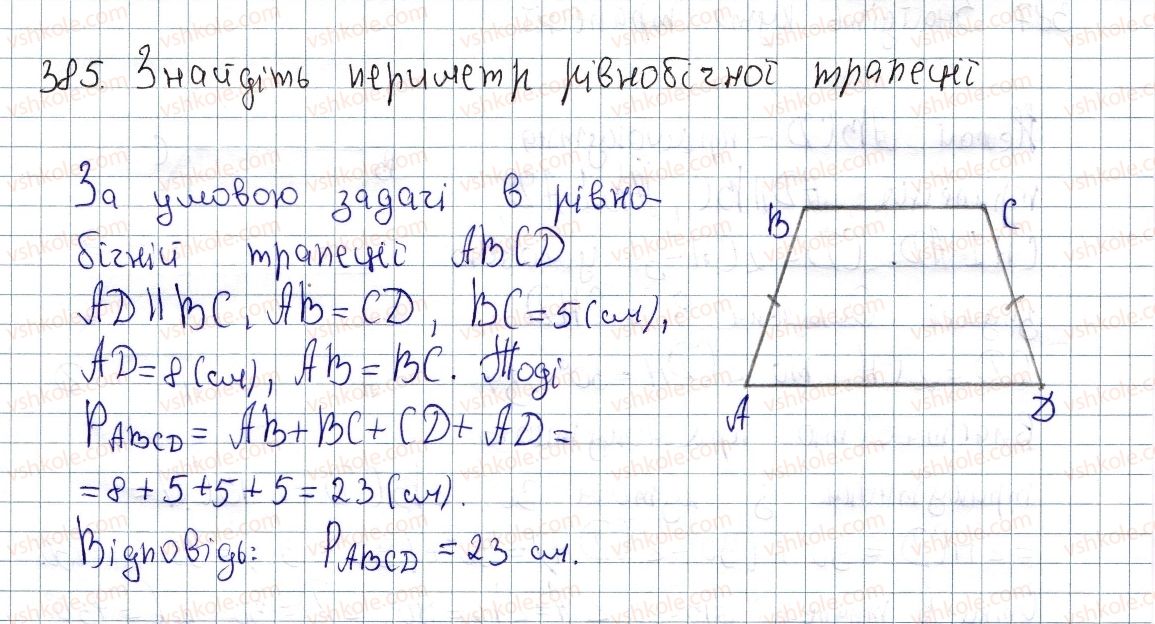 385. Знайдіть периметр рівнобічної трапеції
За умовою задачі в рівно-
бічній трапеції ABCD
AD || BC, AB = CD, BC = 5 (см),
AD = 8 (см), AB = BC. Тоді
P ABCD = AB + BC + CD + AD =
= 8 + 5 + 5 + 5 = 23 (см).
Відповідь: P ABCD = 23 см.
B C
A D
vshkole.com